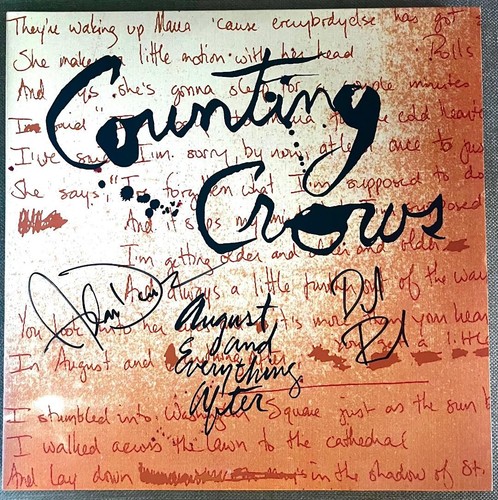 They're waking up Maria 'cause everybody else has got
She makes a little motion with her head
Rolls
And says she's gonna sleep for a couple minutes
I said I to Maria for the cold hearted
I've said I'm sorry by now, at least once to just
She says, I forgotten what I'm supposed to do
And it
I'm supposed
I'm getting older and older and older
And always a little further out of the way
You look into her it's more than your heart
a little
In August and
Counting
Crows
August
and
Everything
After
I stumbled into Washington Square just as the sun b
I walked across the lawn to the cathedral
And lay down in the shadow of St.